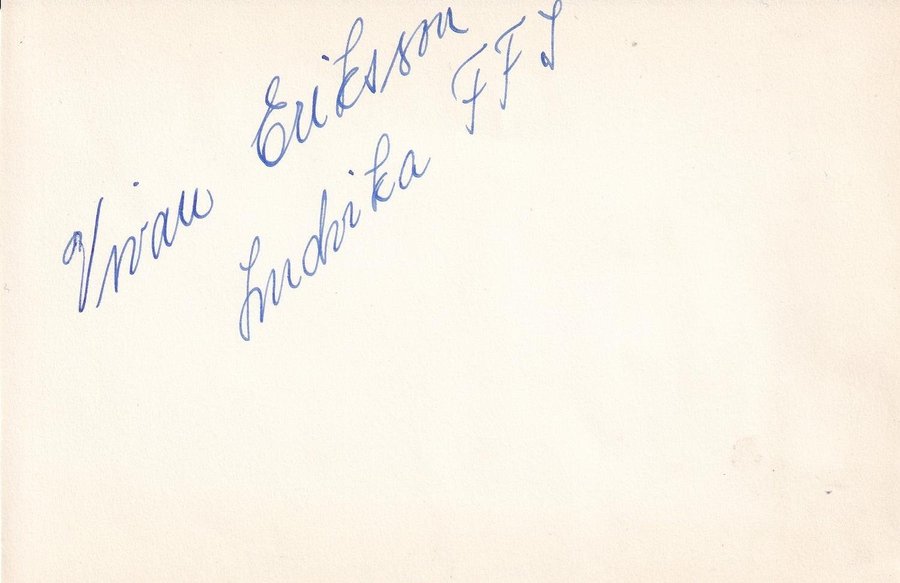 Vivan Eriksson
Ludvika FFI